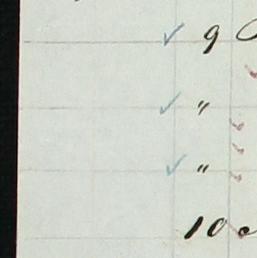 ✓ 9
✓ "
✓ "
10